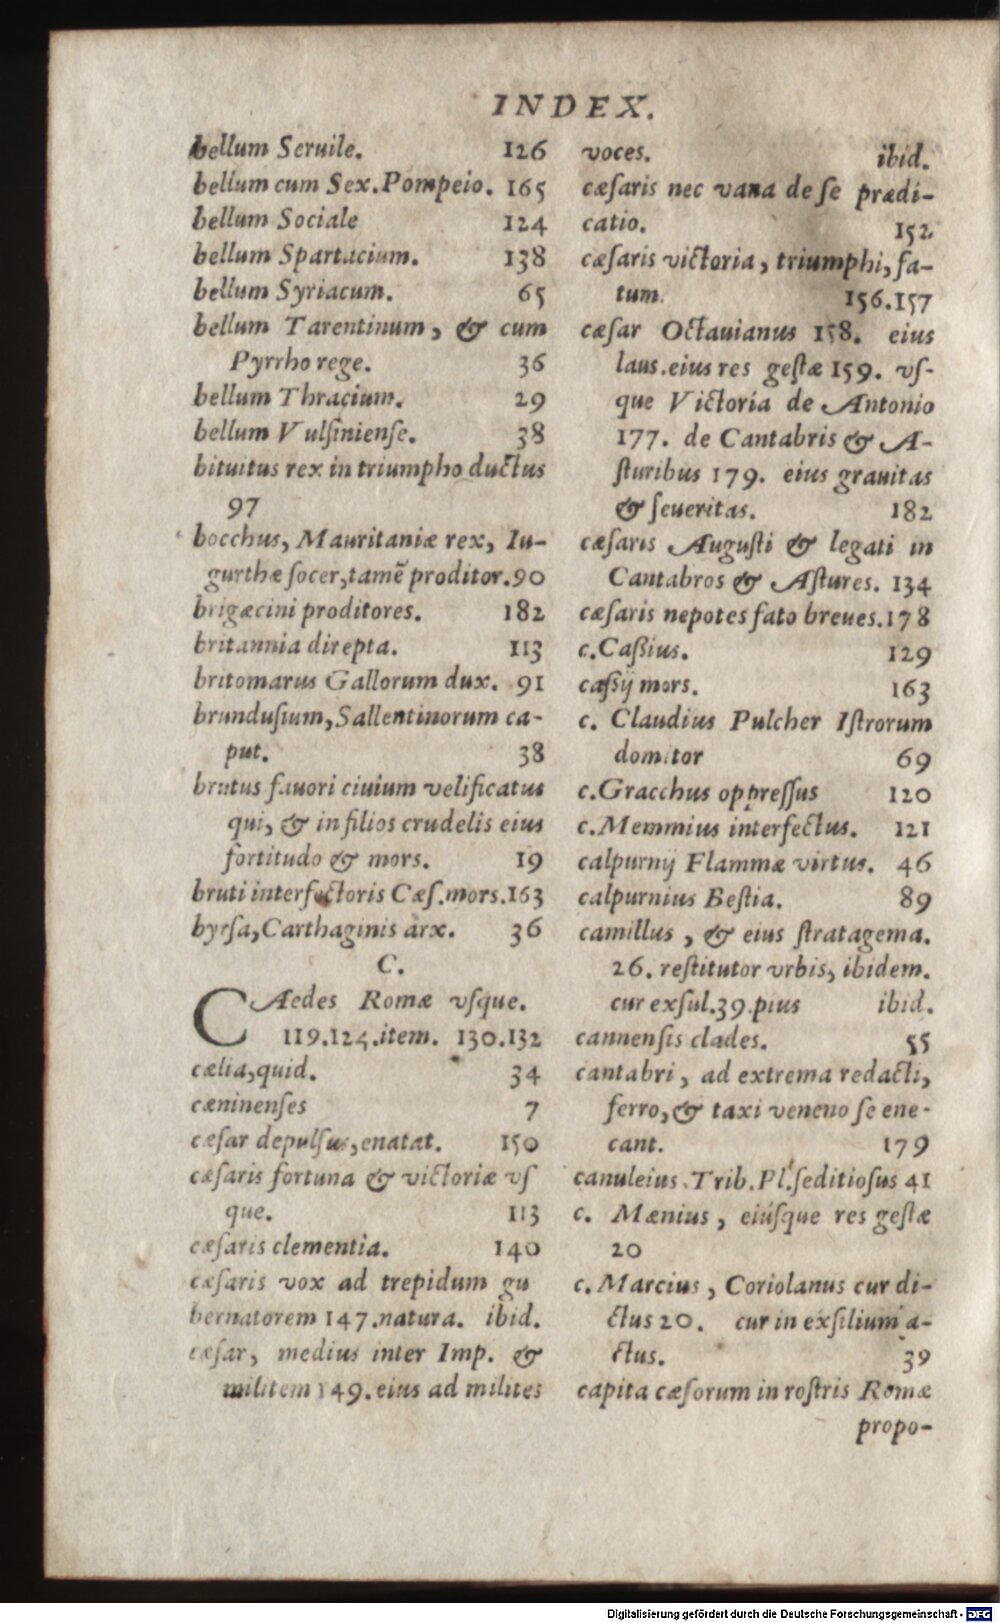 INDEX.
bellum Seruile. 126
bellum cum Sex. Pompeio. 165
bellum Sociale 124
bellum Spartacium. 138
bellum Syriacum. 65
bellum Tarentinum, & cum
Pyrrho rege. 36
bellum Thracium. 29
bellum Vulſinienſe. 38
bituitus rex in triumpho ductus
97
bocchus, Mauritaniæ rex, Iu-
gurthæ ſocer, tamẽ proditor. 90
brigæcini proditores. 182
britannia direpta. 113
britomarus Gallorum dux. 91
brunduſium, Sallentinorum ca-
put. 38
brutus fauori ciuium velificatus
qui, & in filios crudelis eius
fortitudo & mors. 19
bruti interfectoris Cæſ. mors. 163
byrſa, Carthaginis arx. 36
C.
CÆdes Romæ vſque.
119.124.item. 130.132
cælia, quid. 34
cæninenſes 7
cæſar depulſus, enatat. 150
cæſaris fortuna & victoriæ vſ
que. 113
cæſaris clementia. 140
cæſaris vox ad trepidum gu
bernatorem 147. natura. ibid.
cæſar, medius inter Imp. &
militem 149. eius ad milites
voces. ibid.
cæſaris nec vana de ſe prædi-
catio. 152
cæſaris victoria, triumphi, fa-
tum. 156.157
cæſar Octauianus 158. eius
laus. eius res geſtæ 159. vſ-
que Victoria de Antonio
177. de Cantabris & A-
ſturibus 179. eius grauitas
& ſeueritas. 182
cæſaris Auguſti & legati in
Cantabros & Aſtures. 134
cæſaris nepotes fato breues. 178
c. Caßius. 129
caſſij mors. 163
c. Claudius Pulcher Iſtrorum
domitor 69
c. Gracchus oppreſſus 120
c. Memmius interfectus. 121
calpurnij Flammæ virtus. 46
calpurnius Beſtia. 89
camillus, & eius ſtratagema.
26. reſtitutor vrbis, ibidem.
cur exſul. 39. pius ibid.
cannenſis clades. 55
cantabri, ad extrema redacti,
ferro, & taxi veneno ſe ene-
cant. 179
canuleius. Trib. Pl. ſeditioſus 41
c. Mænius, eiúſque res geſtæ
20
c. Marcius, Coriolanus cur di-
ctus 20. cur in exſilium a-
ctus. 39
capita cæſorum in roſtris Romæ
propo-
Digitalisierung gefördert durch die Deutsche Forschungsgemeinschaft - DFG